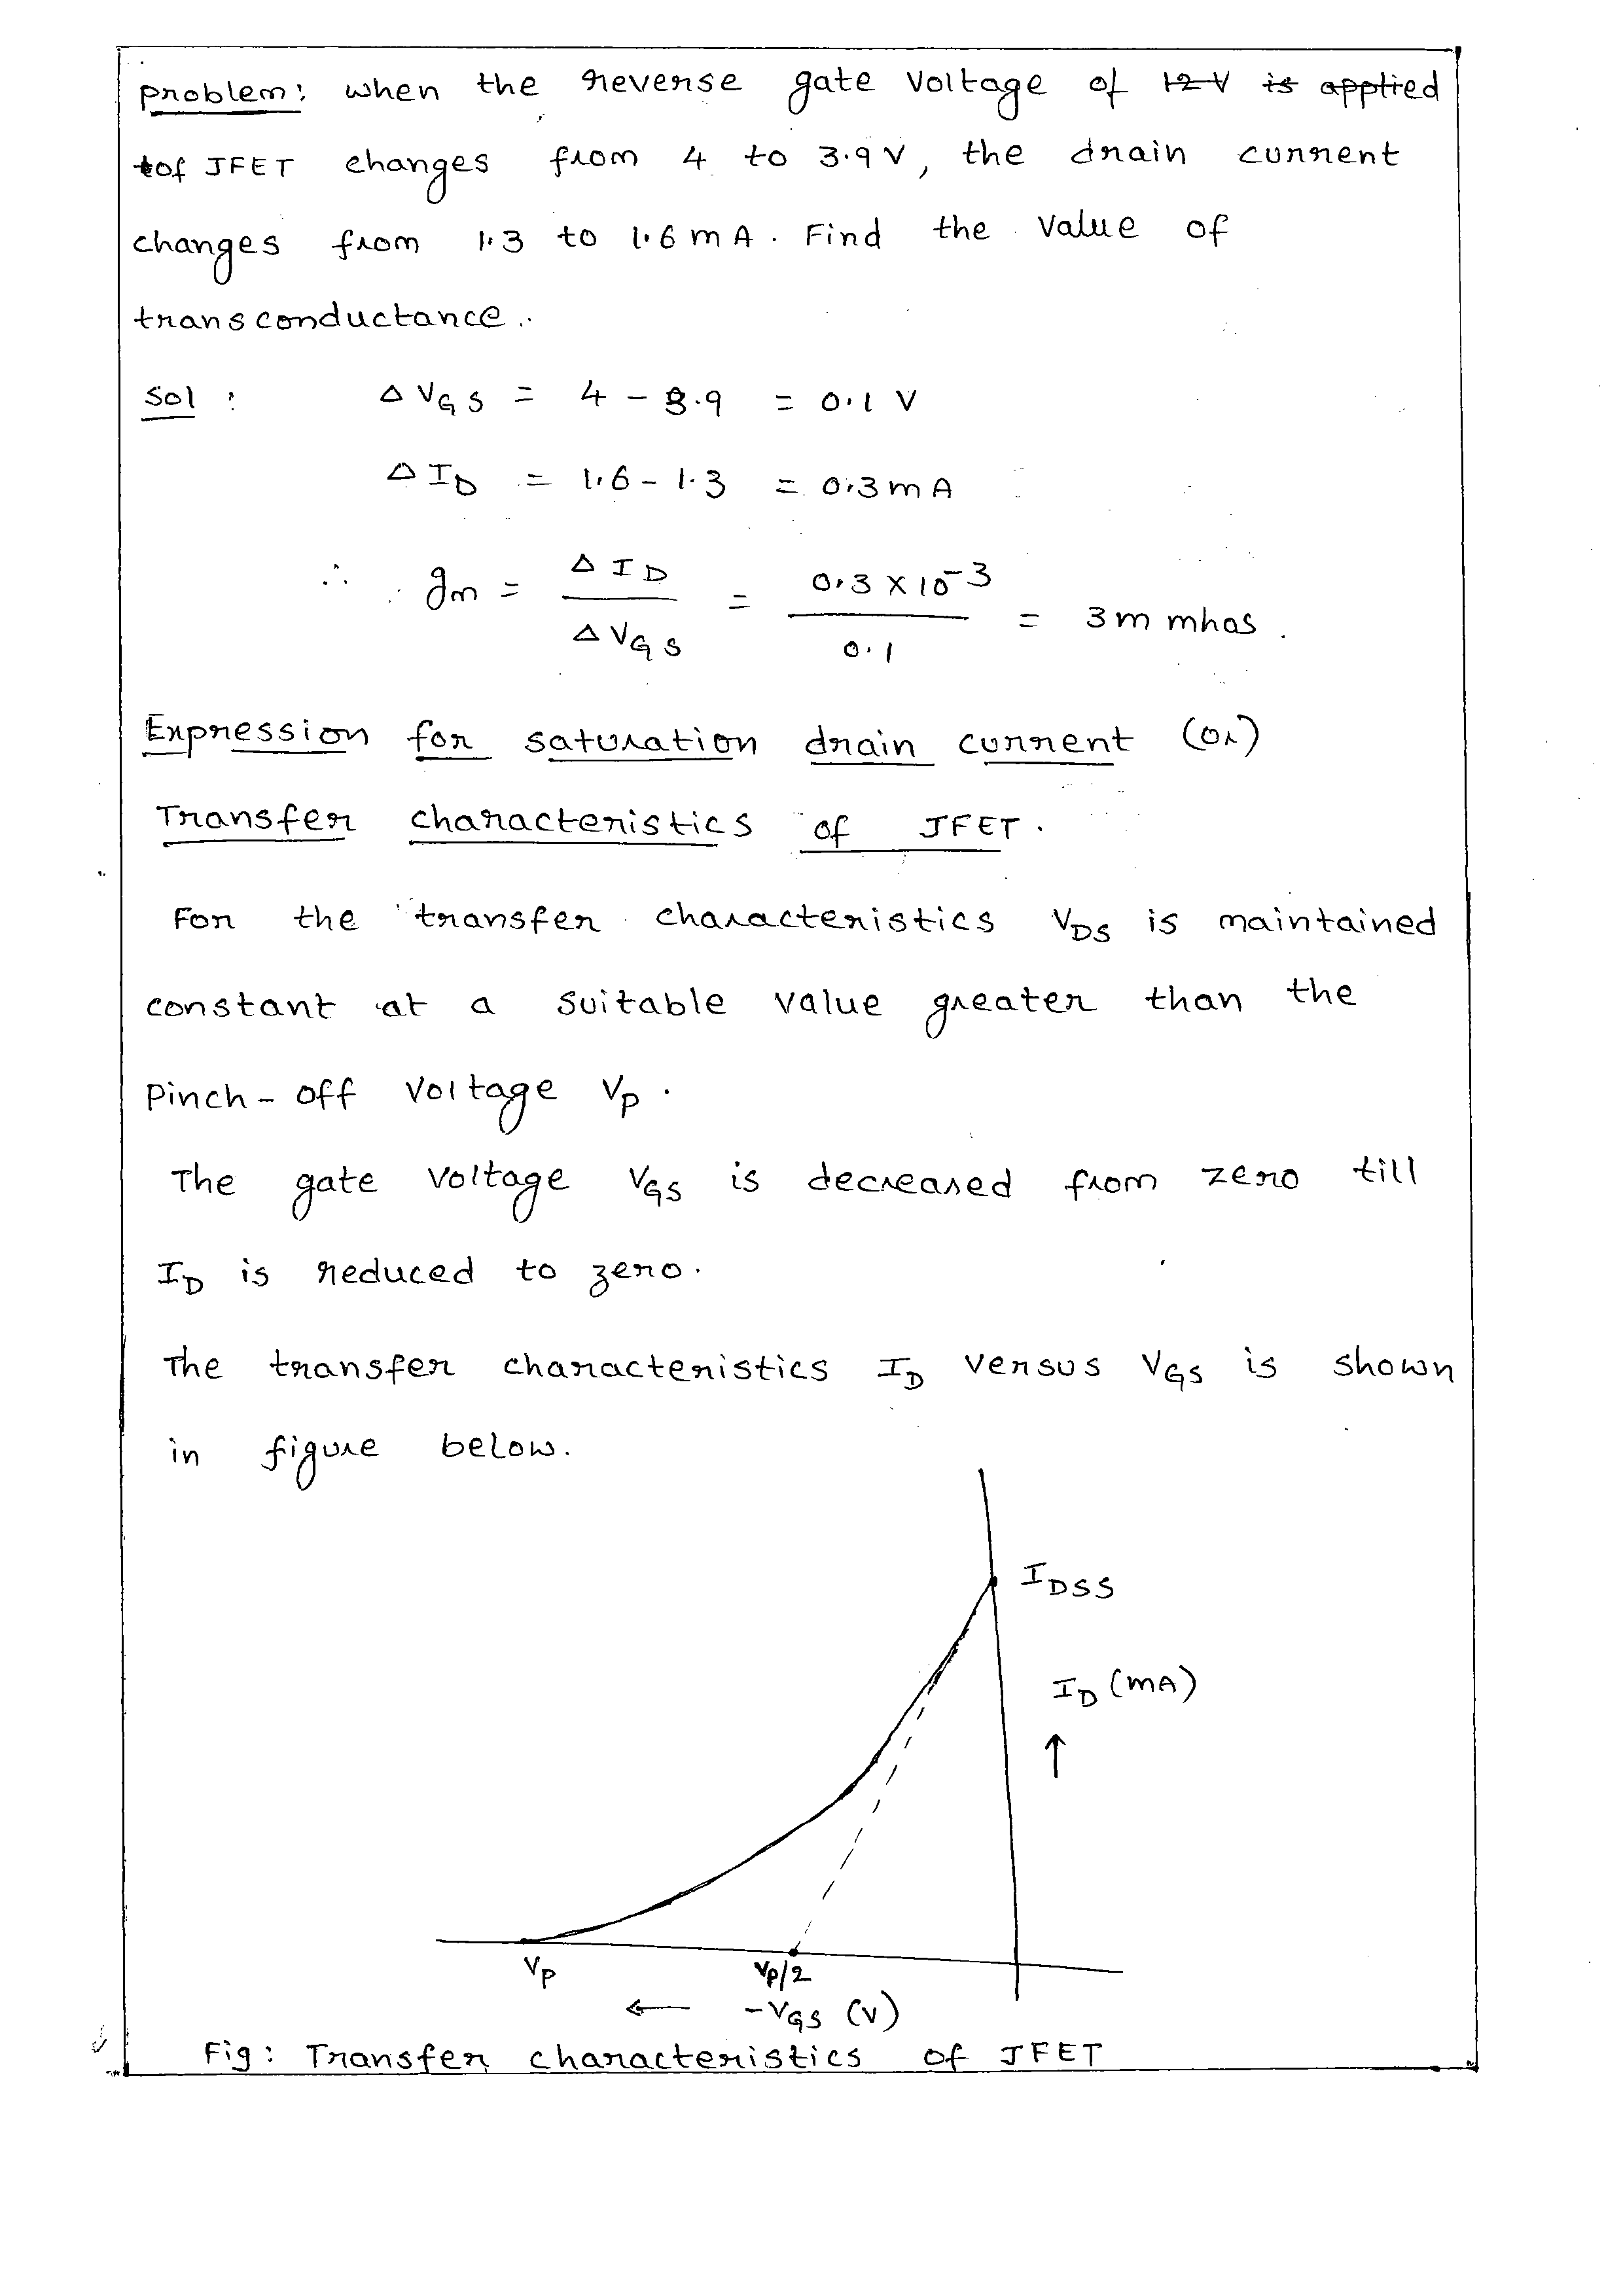 problem: when the reverse gate voltage of 12 V is applied
tof JFET changes from 4 to 3.9 V, the drain current
changes from 1.3 to 1.6 mA. Find the value of
transconductance.
Sol :
Δ VGS = 4 - 3.9 = 0.1 V
Δ ID = 1.6 - 1.3 = 0.3 mA
∴ gm = Δ ID / Δ VGS = 0.3 × 10^-3 / 0.1 = 3 m mhos.
Expression for saturation drain current (or)
Transfer characteristics of JFET.
For the transfer characteristics VDS is maintained
constant at a suitable value greater than the
Pinch-off voltage Vp.
The gate voltage VGS is decreased from zero till
ID is reduced to zero.
The transfer characteristics ID versus VGS is shown
in figure below.
IDSS
ID (mA)
↑
Vp
Vp/2
← -VGS (V)
Fig: Transfer characteristics of JFET